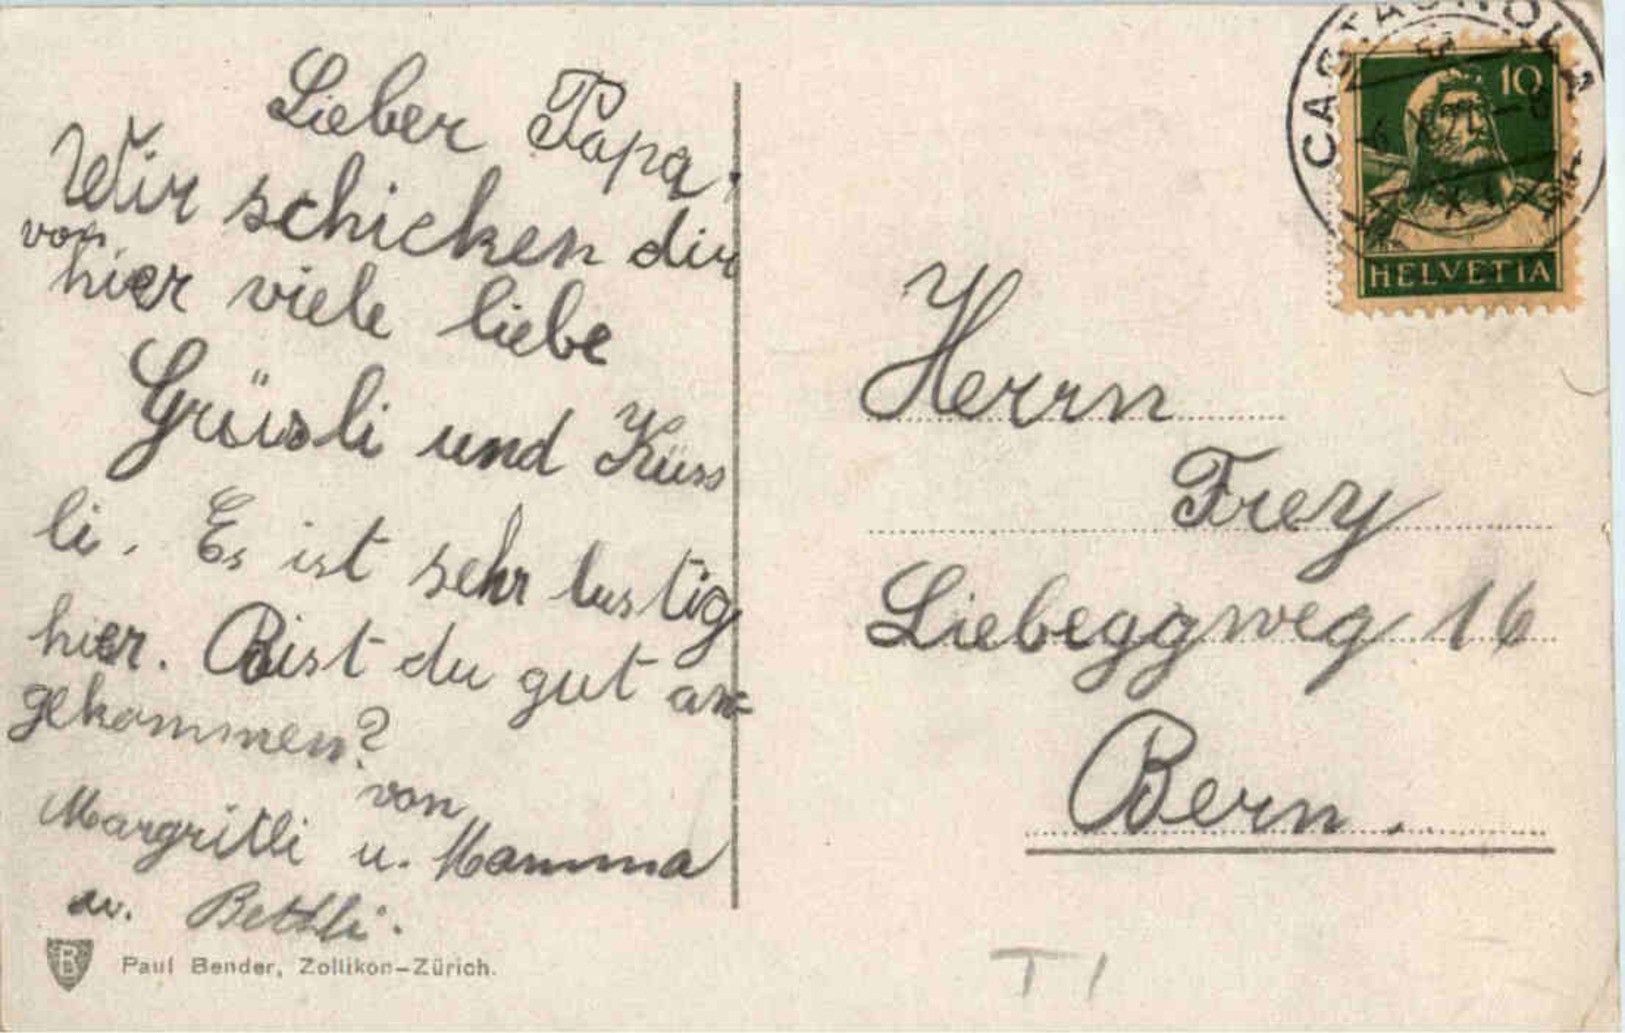 Lieber Papa,
Wir schicken dir
von
hier viele liebe
Grüssli und Küss
li. Es ist sehr lustig
hier. Bist du gut an=
gekommen?
von
Margritli u. Mamma
u. Bethli.
Paul Bender, Zollikon-Zürich.
CASTAGNOLA
10
HELVETIA
Herrn
Frey
Liebeggweg 16
Bern.
TI